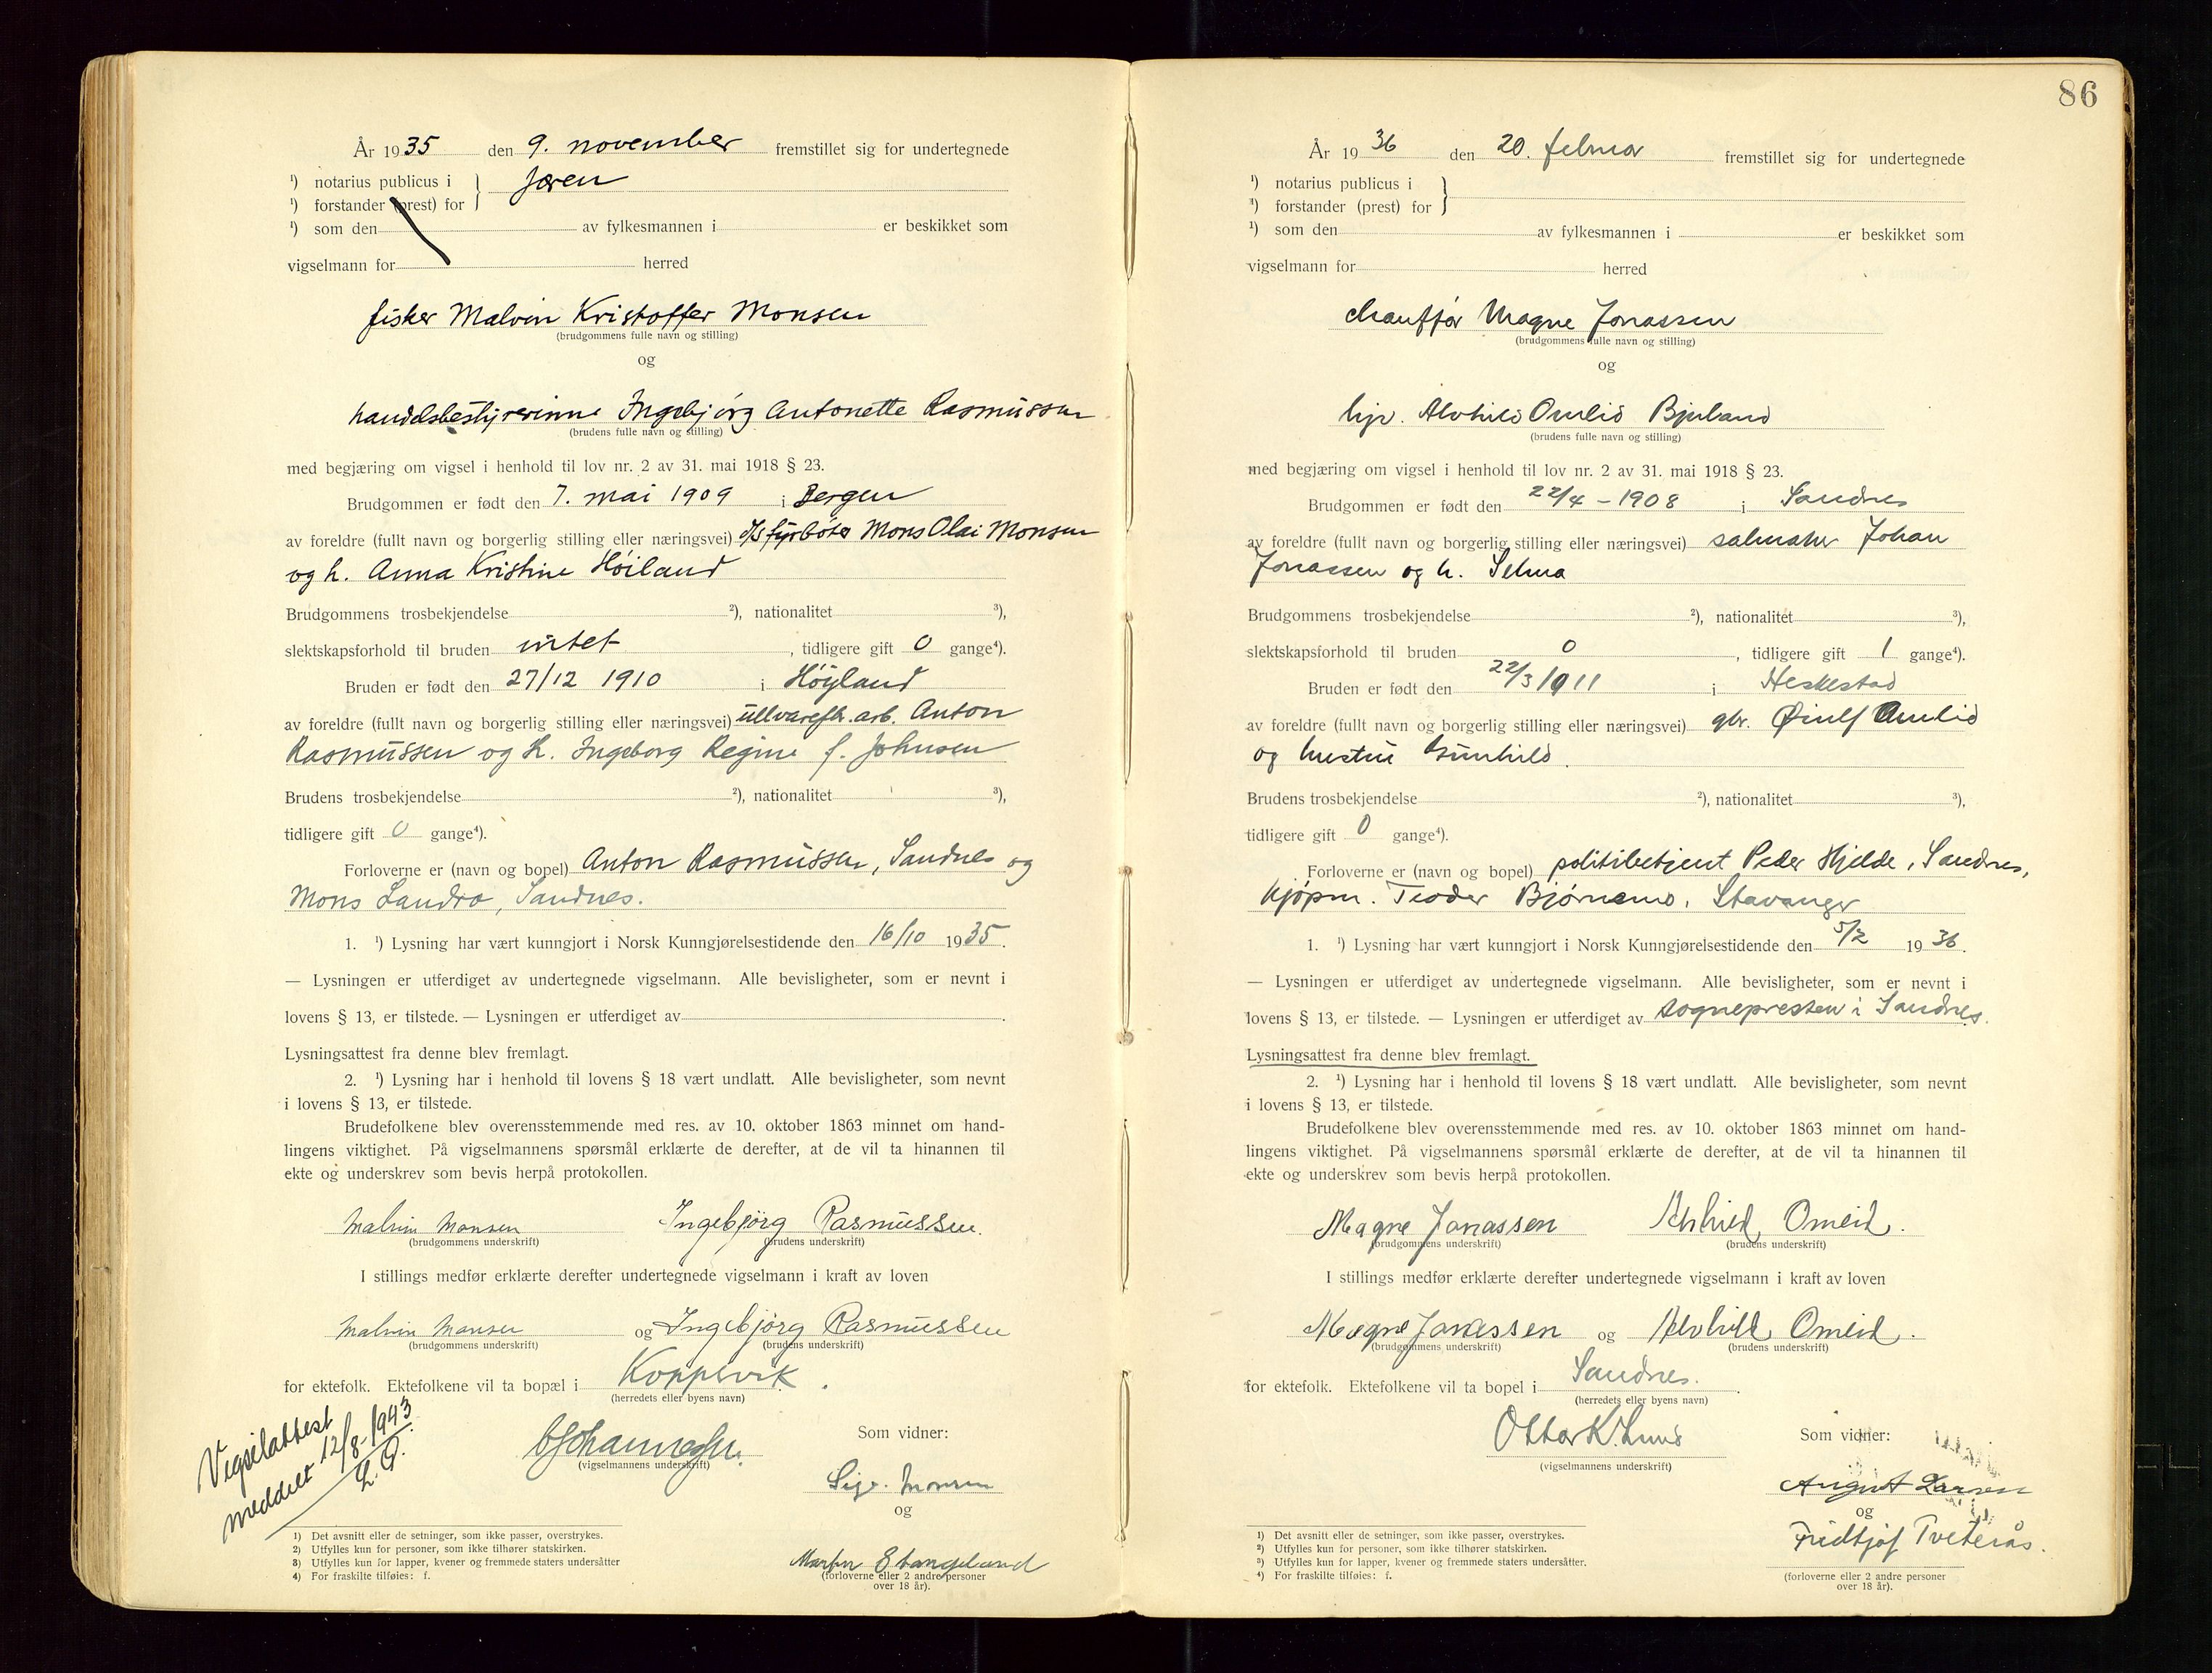 År 1935 den 9. november fremstillet sig for undertegnede
¹) notarius publicus i } Jæren
¹) forstander (prest) for
¹) som den av fylkesmannen i er beskikket som
vigselmann for herred
fisker Malvin Kristoffer Monsen
(brudgommens fulle navn og stilling)
og
handelsbestyrerinne Ingebjørg Antonette Rasmussen
(brudens fulle navn og stilling)
med begjæring om vigsel i henhold til lov nr. 2 av 31. mai 1918 § 23.
Brudgommen er født den 7. mai 1909 i Bergen
av foreldre (fullt navn og borgerlig stilling eller næringsvei) d/s fyrbøter Mons Olai Monsen
og h. Anna Kristine Høiland
Brudgommens trosbekjendelse ²), nationalitet ³),
slektskapsforhold til bruden intet , tidligere gift 0 gange⁴).
Bruden er født den 27/12 1910 i Høyland
av foreldre (fullt navn og borgerlig stilling eller næringsvei) ullvarefbr. arb. Anton
Rasmussen og h. Ingeborg Regine f. Johnsen
Brudens trosbekjendelse ²), nationalitet ³),
tidligere gift 0 gange⁴).
Forloverne er (navn og bopel) Anton Rasmussen, Sandnes og
Mons Landro, Sandnes.
1. ¹) Lysning har vært kunngjort i Norsk Kunngjørelsestidende den 16/10 1935.
— Lysningen er utferdiget av undertegnede vigselmann. Alle bevisligheter, som er nevnt i
lovens § 13, er tilstede. — Lysningen er utferdiget av .
Lysningsattest fra denne blev fremlagt.
2. ¹) Lysning har i henhold til lovens § 18 vært undlatt. Alle bevisligheter, som nevnt
i lovens § 13, er tilstede.
Brudefolkene blev overensstemmende med res. av 10. oktober 1863 minnet om hand-
lingens viktighet. På vigselmannens spørsmål erklærte de derefter, at de vil ta hinannen til
ekte og underskrev som bevis herpå protokollen.
Malvin Monsen Ingebjørg Rasmussen.
(brudgommens underskrift) (brudens underskrift)
I stillings medfør erklærte derefter undertegnede vigselmann i kraft av loven
Malvin Monsen og Ingebjørg Rasmussen
(brudgommens underskrift) (brudens underskrift)
for ektefolk. Ektefolkene vil ta bopæl i Koppervik .
(herredets eller byens navn)
Vigselattest
meddelt 12/8-1943
Som vidner:
(vigselmannens underskrift)
Sig. Monsen
og
Martin Stangeland
(forloverne eller 2 andre personer
over 18 år).
1) Det avsnitt eller de setninger, som ikke passer, overstrykes.
2) Utfylles kun for personer, som ikke tilhører statskirken.
3) Utfylles kun for lapper, kvener og fremmede staters undersåtter
4) For fraskilte tilføies: f.
86
År 1936 den 20. februar fremstillet sig for undertegnede
¹) notarius publicus i }
¹) forstander (prest) for
¹) som den av fylkesmannen i er beskikket som
vigselmann for herred
chauffør Magne Jonassen
(brudgommens fulle navn og stilling)
og
hjv. Alvhild Omlid Bjuland
(brudens fulle navn og stilling)
med begjæring om vigsel i henhold til lov nr. 2 av 31. mai 1918 § 23.
Brudgommen er født den 22/4 - 1908 i Sandnes
av foreldre (fullt navn og borgerlig stilling eller næringsvei) salmaker Johan
Jonassen og h. Selma
Brudgommens trosbekjendelse ²), nationalitet ³),
slektskapsforhold til bruden 0 , tidligere gift 1 gange⁴).
Bruden er født den 22/3 1911 i Heskestad
av foreldre (fullt navn og borgerlig stilling eller næringsvei) gbr. Øiulf Omlid
og hustru Gunhild.
Brudens trosbekjendelse ²), nationalitet ³),
tidligere gift 0 gange⁴).
Forloverne er (navn og bopel) politibetjent Peder Hjelde, Sandnes,
kjøpm. Teodor Bjørnemo, Stavanger
1. ¹) Lysning har vært kunngjort i Norsk Kunngjørelsestidende den 5/2 1936.
— Lysningen er utferdiget av undertegnede vigselmann. Alle bevisligheter, som er nevnt i
lovens § 13, er tilstede. — Lysningen er utferdiget av sognepresten i Sandnes.
Lysningsattest fra denne blev fremlagt.
2. ¹) Lysning har i henhold til lovens § 18 vært undlatt. Alle bevisligheter, som nevnt
i lovens § 13, er tilstede.
Brudefolkene blev overensstemmende med res. av 10. oktober 1863 minnet om hand-
lingens viktighet. På vigselmannens spørsmål erklærte de derefter, at de vil ta hinannen til
ekte og underskrev som bevis herpå protokollen.
Magne Jonassen Alvhild Omlid.
(brudgommens underskrift) (brudens underskrift)
I stillings medfør erklærte derefter undertegnede vigselmann i kraft av loven
Magne Jonassen og Alvhild Omlid.
(brudgommens underskrift) (brudens underskrift)
for ektefolk. Ektefolkene vil ta bopel i Sandnes.
(herredets eller byens navn)
Otto K. Lund Som vidner:
(vigselmannens underskrift)
August Larsen
og
Fridtjof Tveterås.
(forloverne eller 2 andre personer
over 18 år).
1) Det avsnitt eller de setninger, som ikke passer, overstrykes.
2) Utfylles kun for personer, som ikke tilhører statskirken.
3) Utfylles kun for lapper, kvener og fremmede staters undersåtter.
4) For fraskilte tilføies: f.